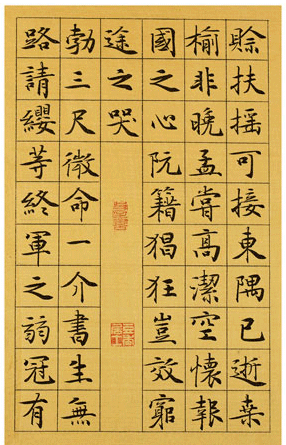 賒扶搖可接東隅已逝桑
榆非晚孟嘗高潔空懷報
國之心阮籍猖狂豈效窮
途之哭
勃三尺微命一介書生無
路請纓等終軍之弱冠有